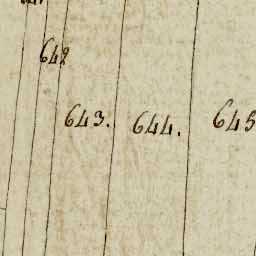 642
643.
644.
645